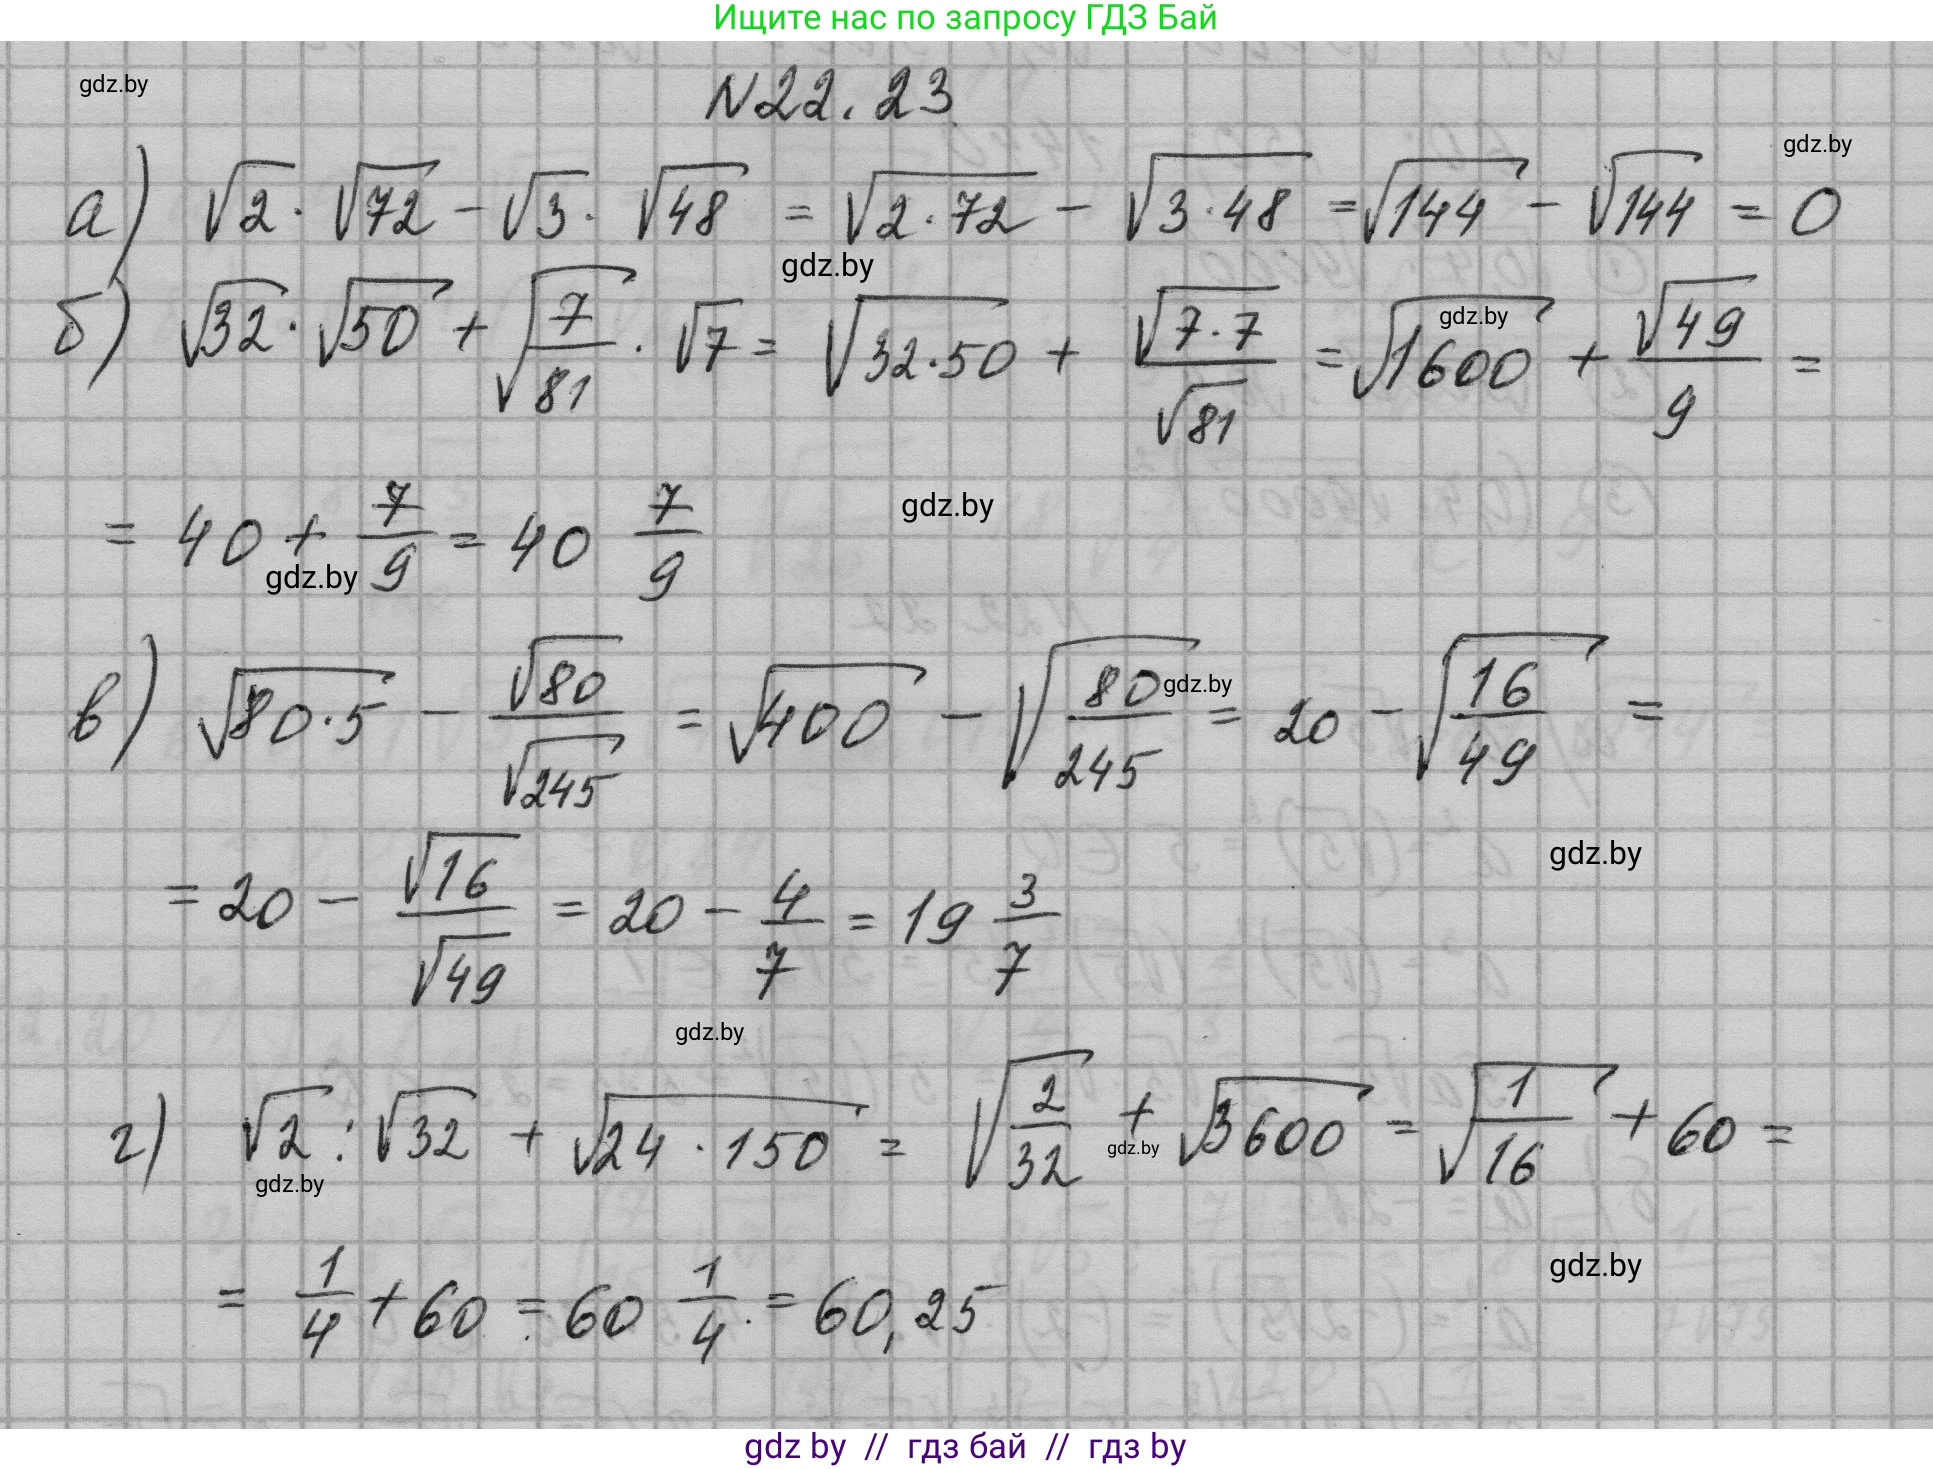 Ищите нас по запросу ГДЗ Бай
gdz.by
N22.23
gdz.by
а) √2 · √72 − √3 · √48 = √(2·72) − √(3·48) = √144 − √144 = 0
gdz.by
б) √32 · √50 + √(7/81) · √7 = √(32·50) + √(7·7)/√81 = √1600 + √49/9 =
gdz.by
= 40 + 7/9 = 40 7/9
gdz.by
gdz.by
в) √(80·5) − √80/√245 = √400 − √(80/245) = 20 − √(16/49) =
gdz.by
= 20 − √16/√49 = 20 − 4/7 = 19 3/7
gdz.by
gdz.by
г) √2 : √32 + √(24 · 150) = √(2/32) + √3600 = √(1/16) + 60 =
gdz.by
gdz.by
= 1/4 + 60 = 60 1/4 = 60,25
gdz.by
gdz by // гдз бай // гдз by